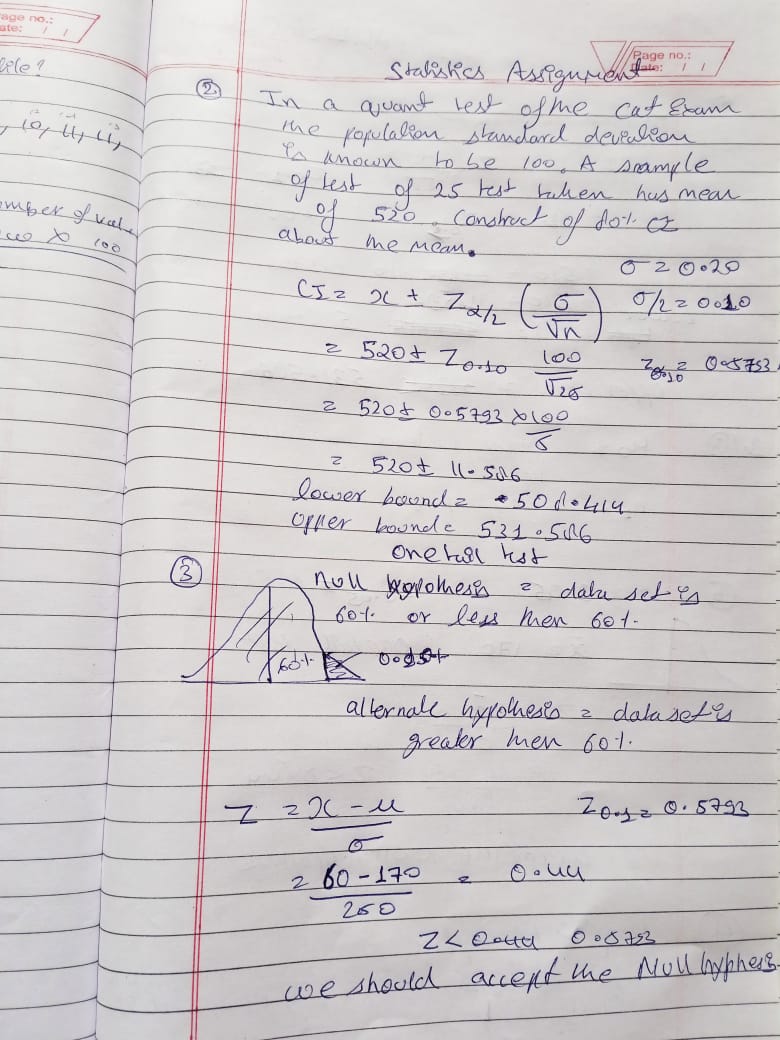 age no.:
ate: / /
, 10, 11, 11,
mber of val
x 100
Page no.:
Date: / /
Statistics Assignment
② In a quant test of the Cat Exam
the population standard deveation
is known to be 100. A sample
of test of 25 test taken has mean
of 520. Construct of 80% CI
about the mean.
σ = 0.20
CI = x ± Zα/2 (σ/√n) σ/2 = 0.10
= 520 ± Z0.10 100/√25 Z0.10 = 0.5793
= 520 ± 0.5793 x 100/5
= 520 ± 11.586
lower bound = 508.414
upper bound = 531.586
one tail test
③ Null hypothesis = data set is
60% or less then 60%.
60%
alternate hypothesis = data set is
greater then 60%.
Z = x - u/σ Z0.1 = 0.5793
= 60 - 170/250 = 0.44
Z < 0.44 0.5793
we should accept the Null hyphess.